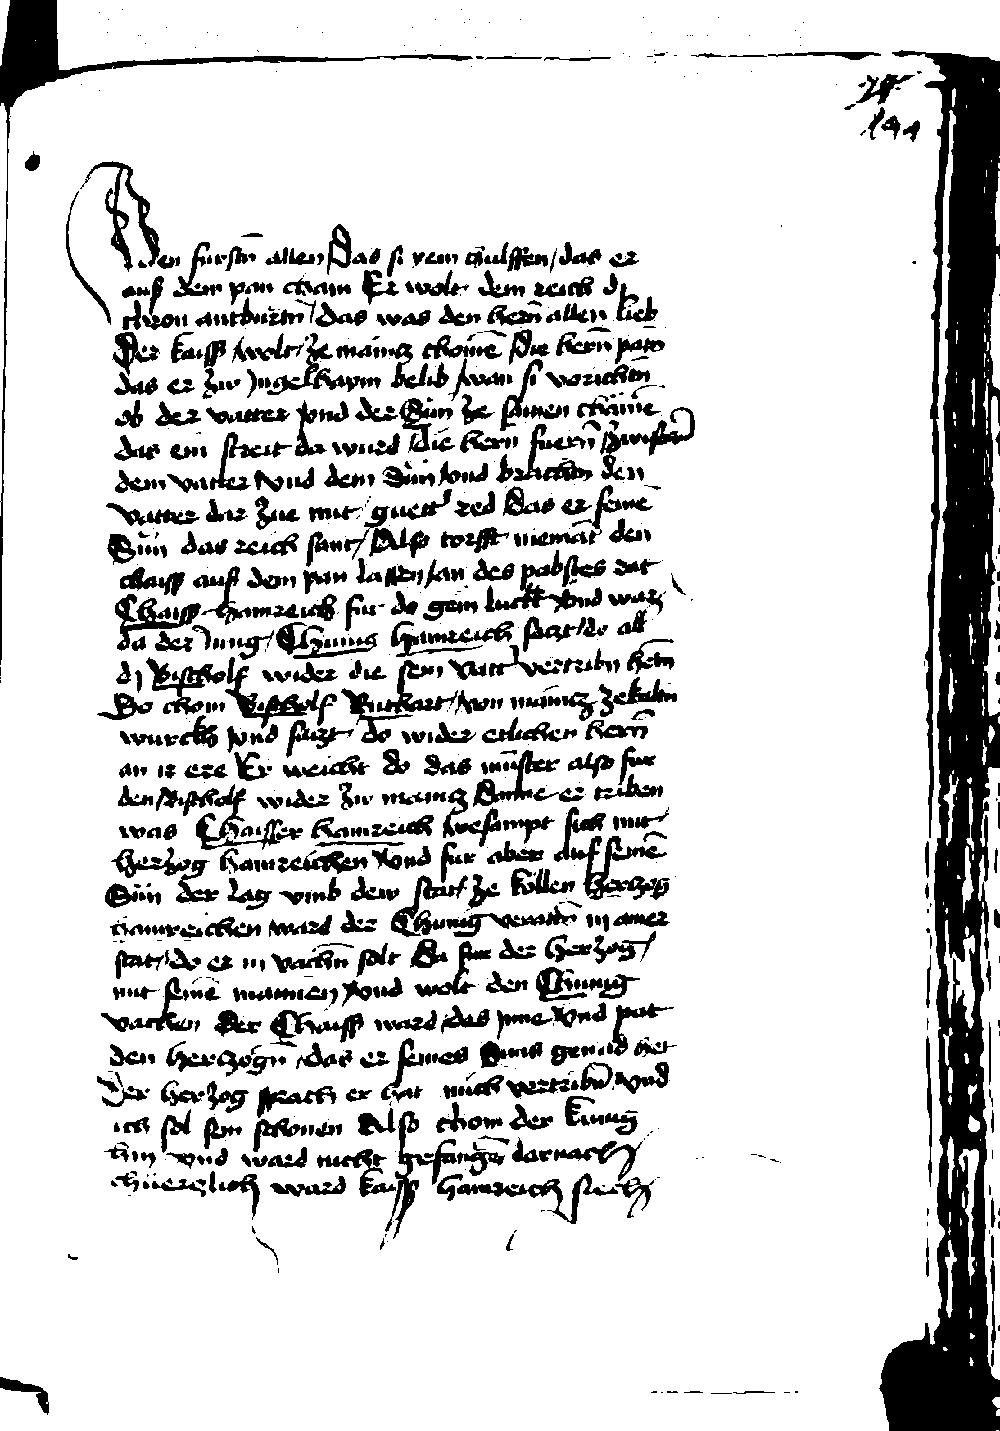 den fürstn̄ allen Das si ÿem hulffen / das er
auß dem pan cham Er wolt dem reich dÿ
chron antburtn̄ / Das was den hern̄ allen lieb
Der kaiss wolt ze maincz chomen̄ / Die hern̄ patn̄
das er zw Jngelhaym belib / wan si vorichtn̄
ob der vatter vnd der Sün ze samen chämē
das ein streit da wurd Die hern fuern̄ zwischn̄
dem vatter vnd dem Sün / vnd brachtn̄ den
vatter dar zue mit guett' red Das er seinē
Sün das reich sant / Also torfft niemāt den
chaiss auß dem pan lassen / an des pabstes rat
Chaiss hainreich fur do gein luttk vnd waz
da der Jung / Chunig hainreich saczt / do all
dÿ Bischolf wider die sein vatt' vertribn̄ hetn̄
So chom Bischolf Ruthart / von maincz ze
wurck vnd saczt do wider etlichen hern̄
an ir ere Er weicht do das münster also fur
den Bischolf wider zw maincz Danne er triben
was Chaisser hainreich besampt sich mit
herzog hainreichen vnd fur aber auf seinē
Sün der lag vmb dew stat / ze köllen herczog
hainreichen ward der Chunig veratn̄ in ainer
stat / do er in vachn̄ solt Da fur der herzog /
mit seinē mannen vnd wolt den Chunig
vachen Der Chaiss ward das ynne vnd pat
den herczogn̄ / das er seines Suns genad het
Der herzog sprach er hat mich vertribn̄ vnd
ich sol sein schonen Also chom der kunig
hin vnd ward nicht gefangē darnach
chüerczlich ward kaiss hainreich siech